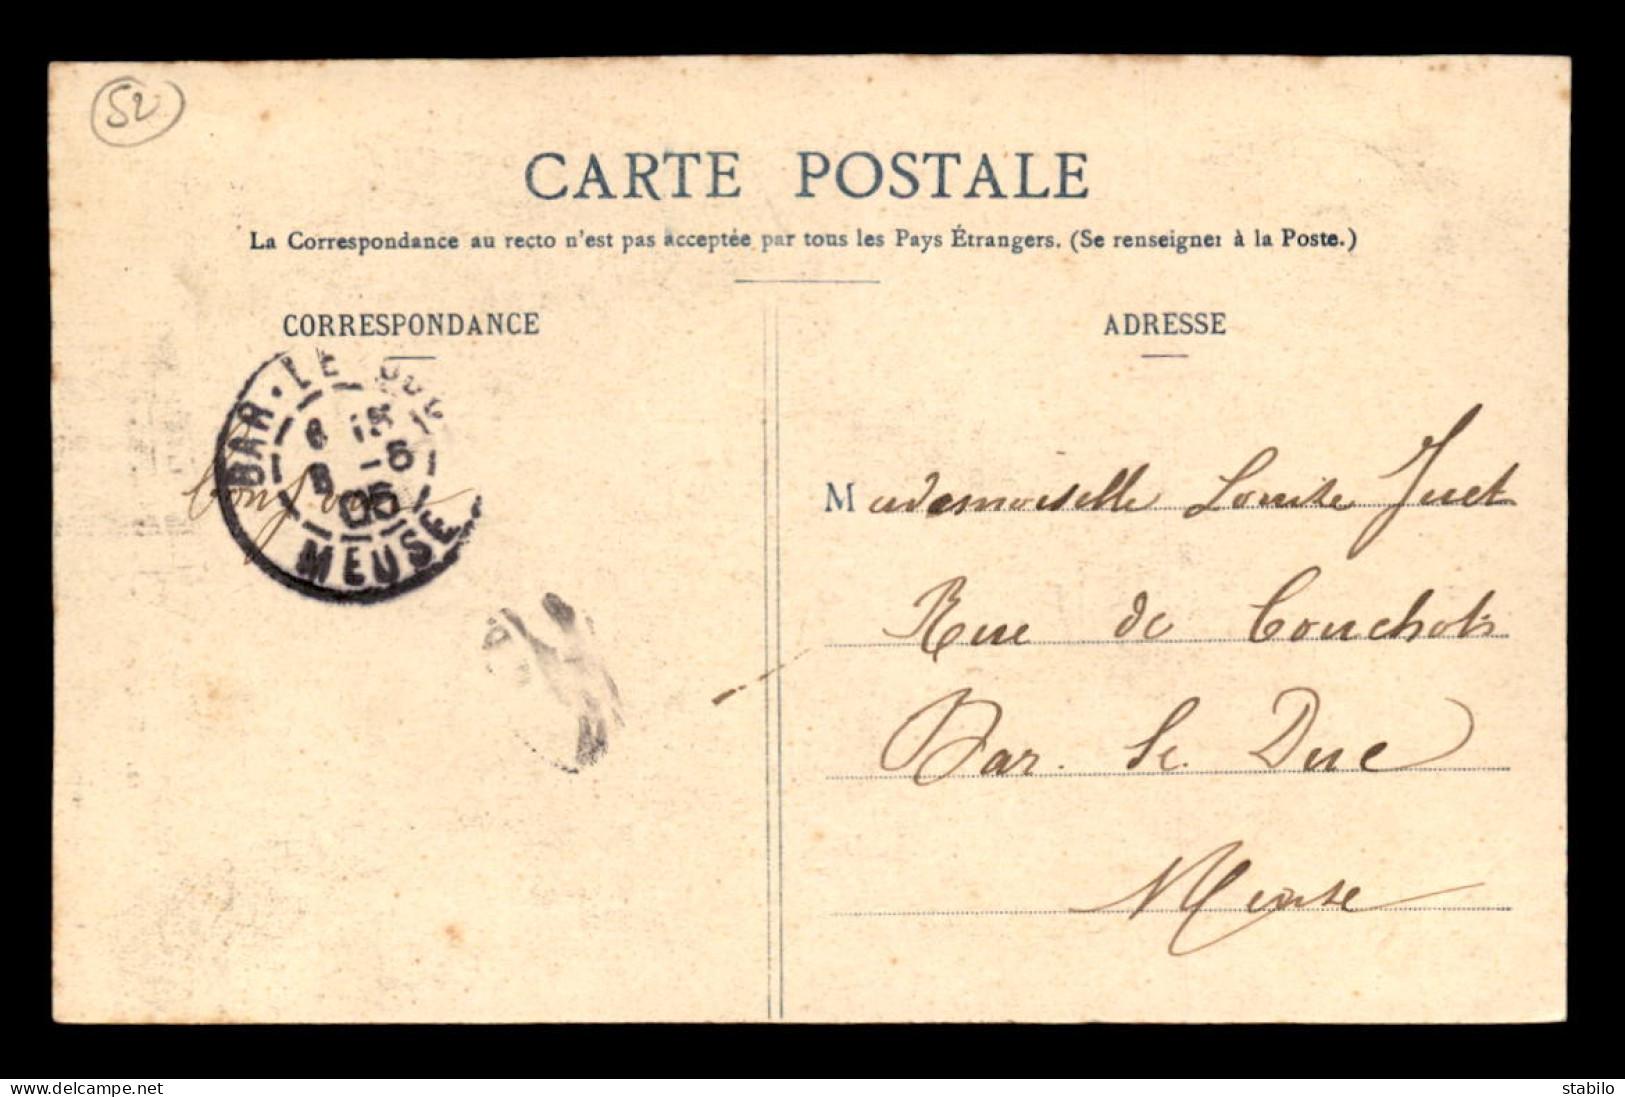 52
CARTE POSTALE
La Correspondance au recto n'est pas acceptée par tous les Pays Étrangers. (Se renseigner à la Poste.)
CORRESPONDANCE
ADRESSE
BAR-LE-DUC
8 -6
05
MEUSE
Mademoiselle Louise Juet
Rue de Couchot
Bar. le. Duc
Meuse
delcampe.net
stabilo